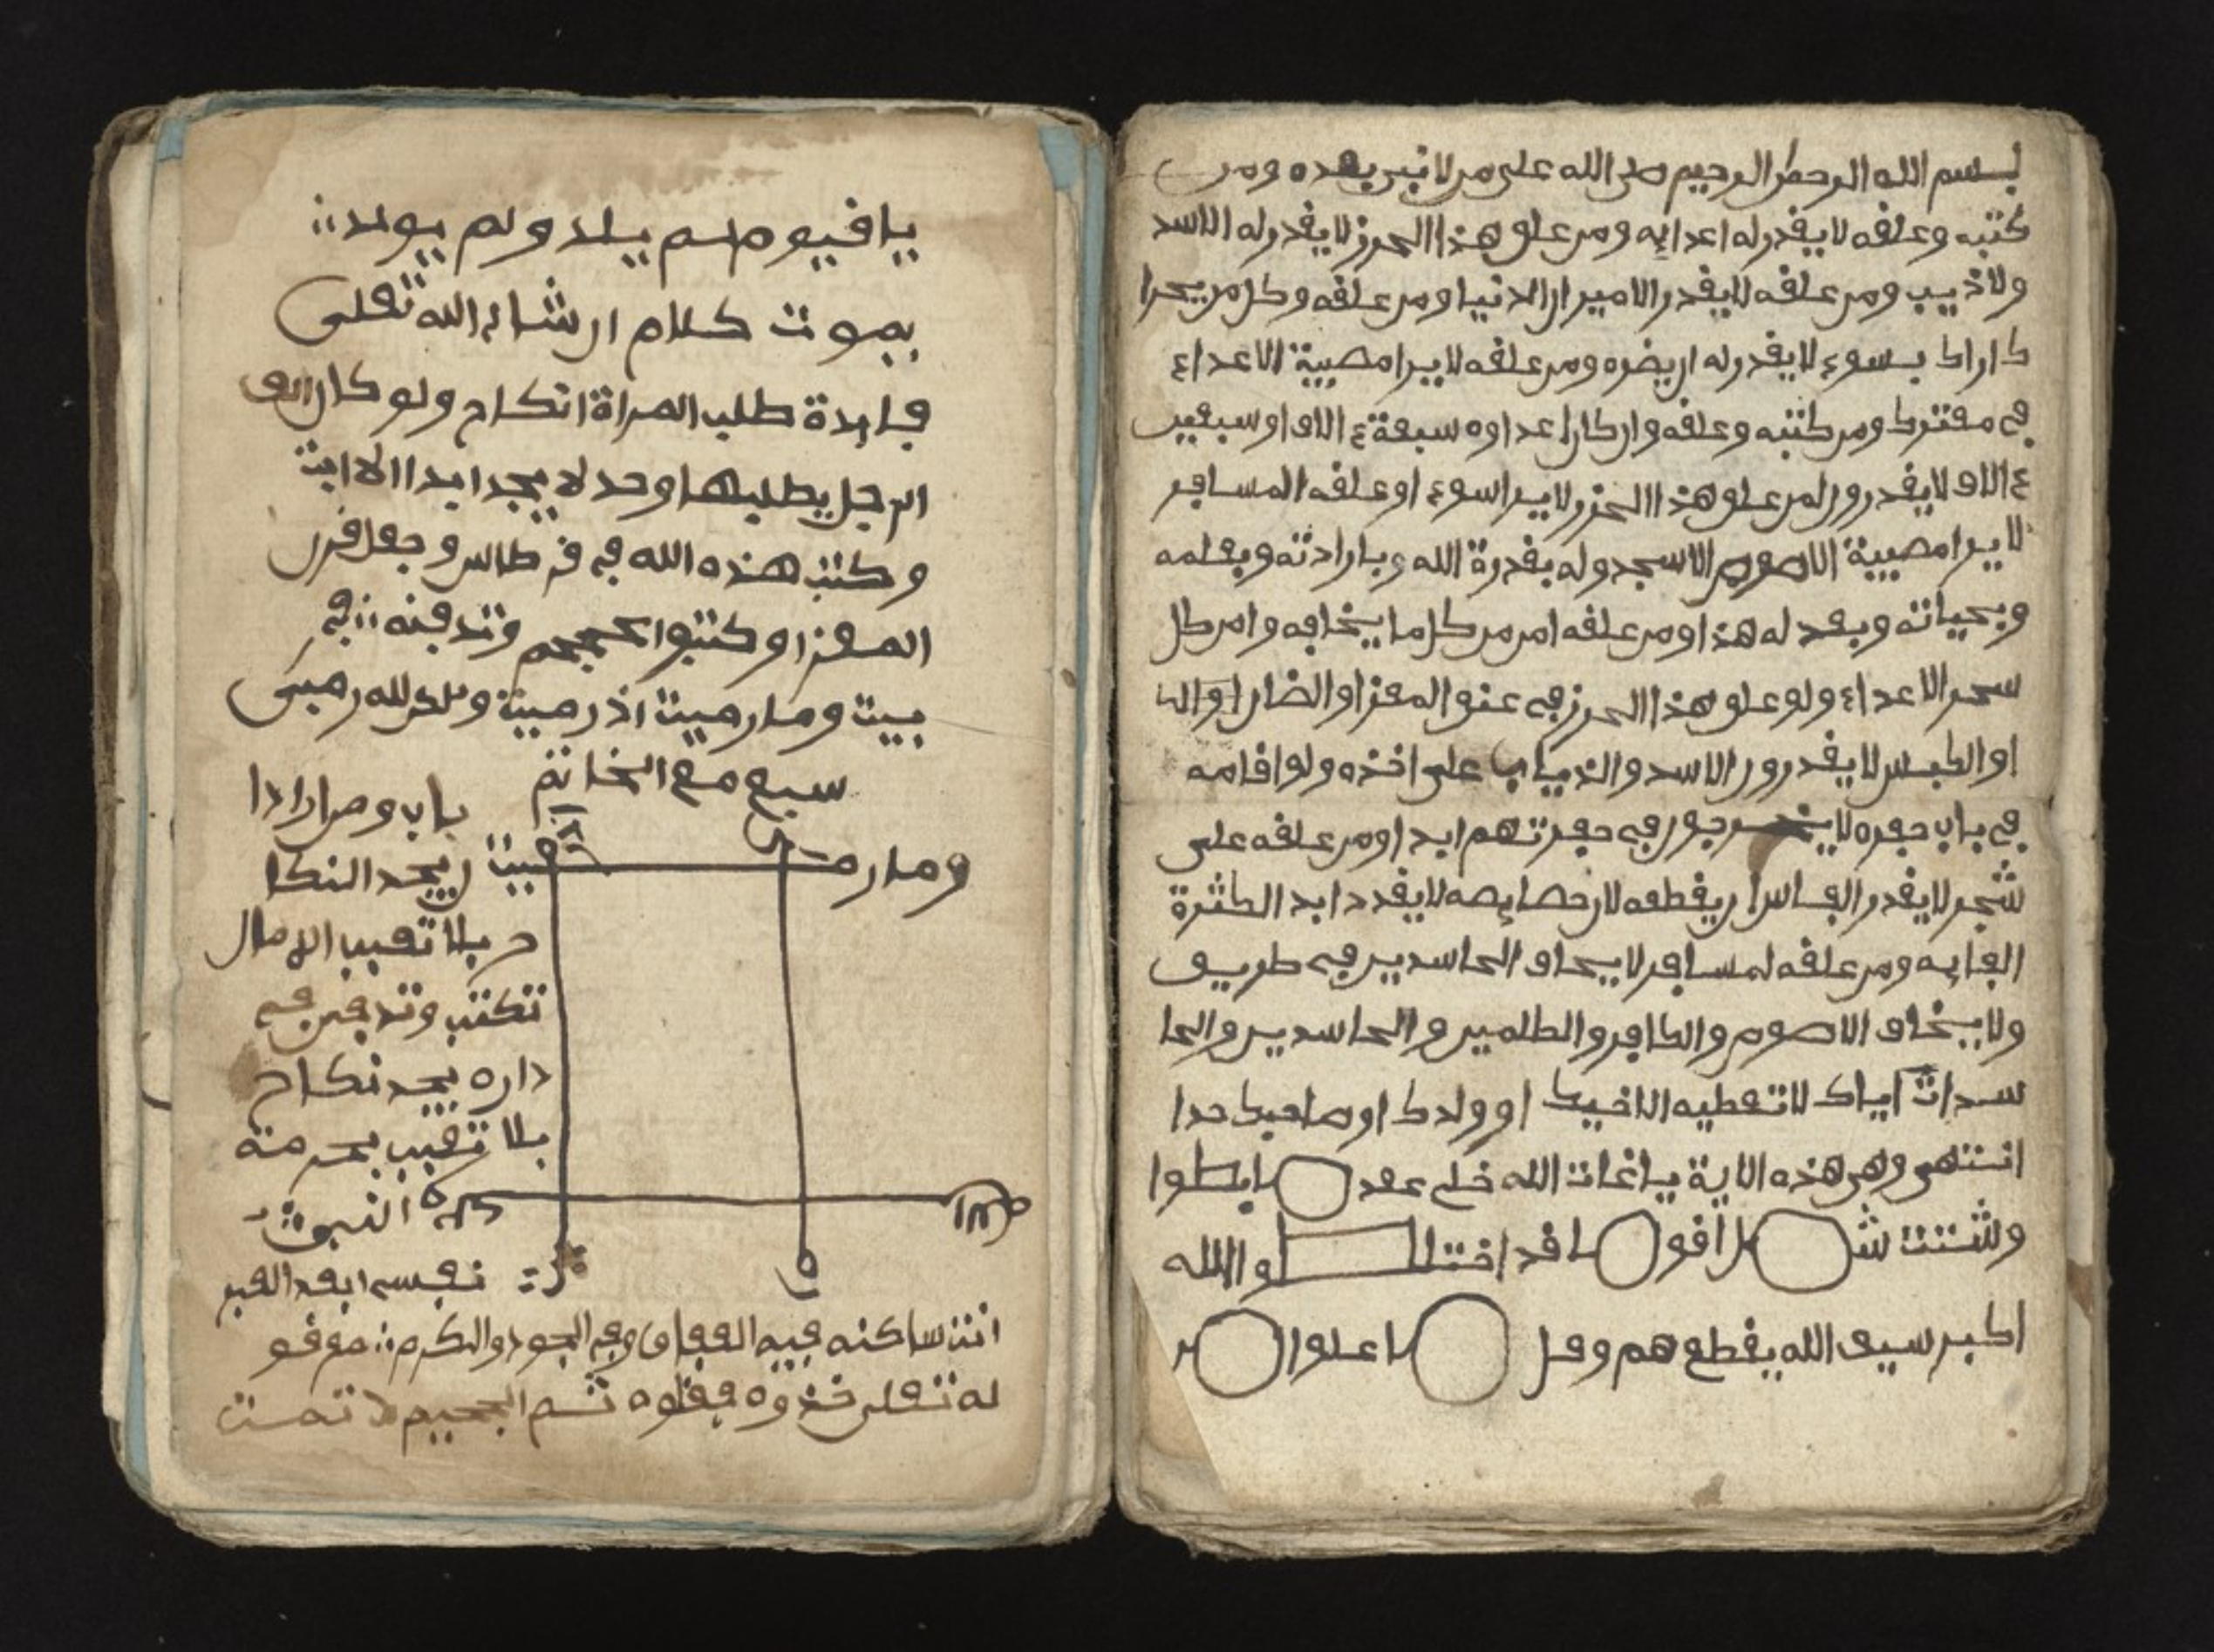 بسم الله الرحمن الرحيم صلى الله على من لا نبي بعده ومن
كتبه وعلقه لا يقدر له اعدايه ومن علق هذا الحرز لا يقدر له الاسد
ولا ذيب ومن علقه لا يقدر الامير ان الدنيا ومن علقه وكل من يحرا
ك اراك بسوء لا يقدر له ان يضره ومن علقه لا يرا مصيبة الاعداء
في معترك ومن كتبه وعلقه وان كان اعداوه سبعة ء الاف او سبعين
ء الاف لا يقدرون لمن علق هذا الحرز لا يرا سوء او علقه المسافر
لا يرا مصيبة الاصوص الا سجدو له بقدرة الله وبارادته وبعلمه
وبحياته وبعد له هذا ومن علقه امن من كل ما يخافه وامن كل
سحر الاعداء ولو علق هذا الحرز في عنق المعز او الضان او
او الكبس لا يقدرون الاسد والذياب على اخذه ولو اقامه
في باب حفره لا جور في حفرتهم ابدا ومن علقه على
شجر لا يقدر الفاس ان يقطعه لان خصايصه لا يقدد ابد الكثرة
الفايه ومن علقه لمسافر لا يخاف الحاسدين في طريق
ولا يخاف الاصوص والكافر والظلمين والحاسدين والحا
سدات اياك لا تعطيه الا اخيك او ولدك او صاحبك حدا
انتهى وهي هذه الاية ياغات الله خلى عقد ابطوا
وشتت ش ل اقو ا قد اختلـ ـو الله
اكبر سيف الله يقطعهم وقل ا علوا
يا قيوم لم يلد ولم يولد
بموت كلام ان شاء الله تعلى
فايدة طلب المراة انكاح ولو كان الف
الرجل يطلبها وحد لا يجد ابدا الا ايت
وكتب هذه الله في قرطاس وجعل قرن
المعز او كتبوا وتدفنه في
بيت وما رميت اذ رميت ولكن الله رمى
سبع مع الخاتم
وما رميت
باب ومن اراد ا
ن يجد النكا
ح بلا تعب الامال
تكتب وتدفن في
داره يجد نكاح
بلا تعب بحرمته
النبوت
نفسي ابعد القبر
انت ساكنه فيه العفاف وفيه الجود والكرم قو
له تعلى خذوه فغلوه ثم الجحيم لا تمست